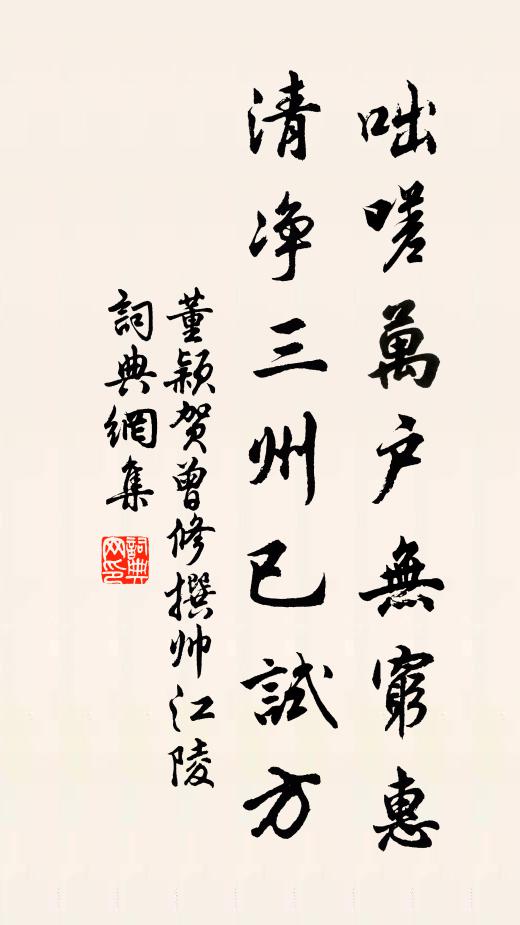 咄嗟萬户無窮惠
清净三州已試方
董颖贺曾修撰帅江陵
詞典網集
詞典網印